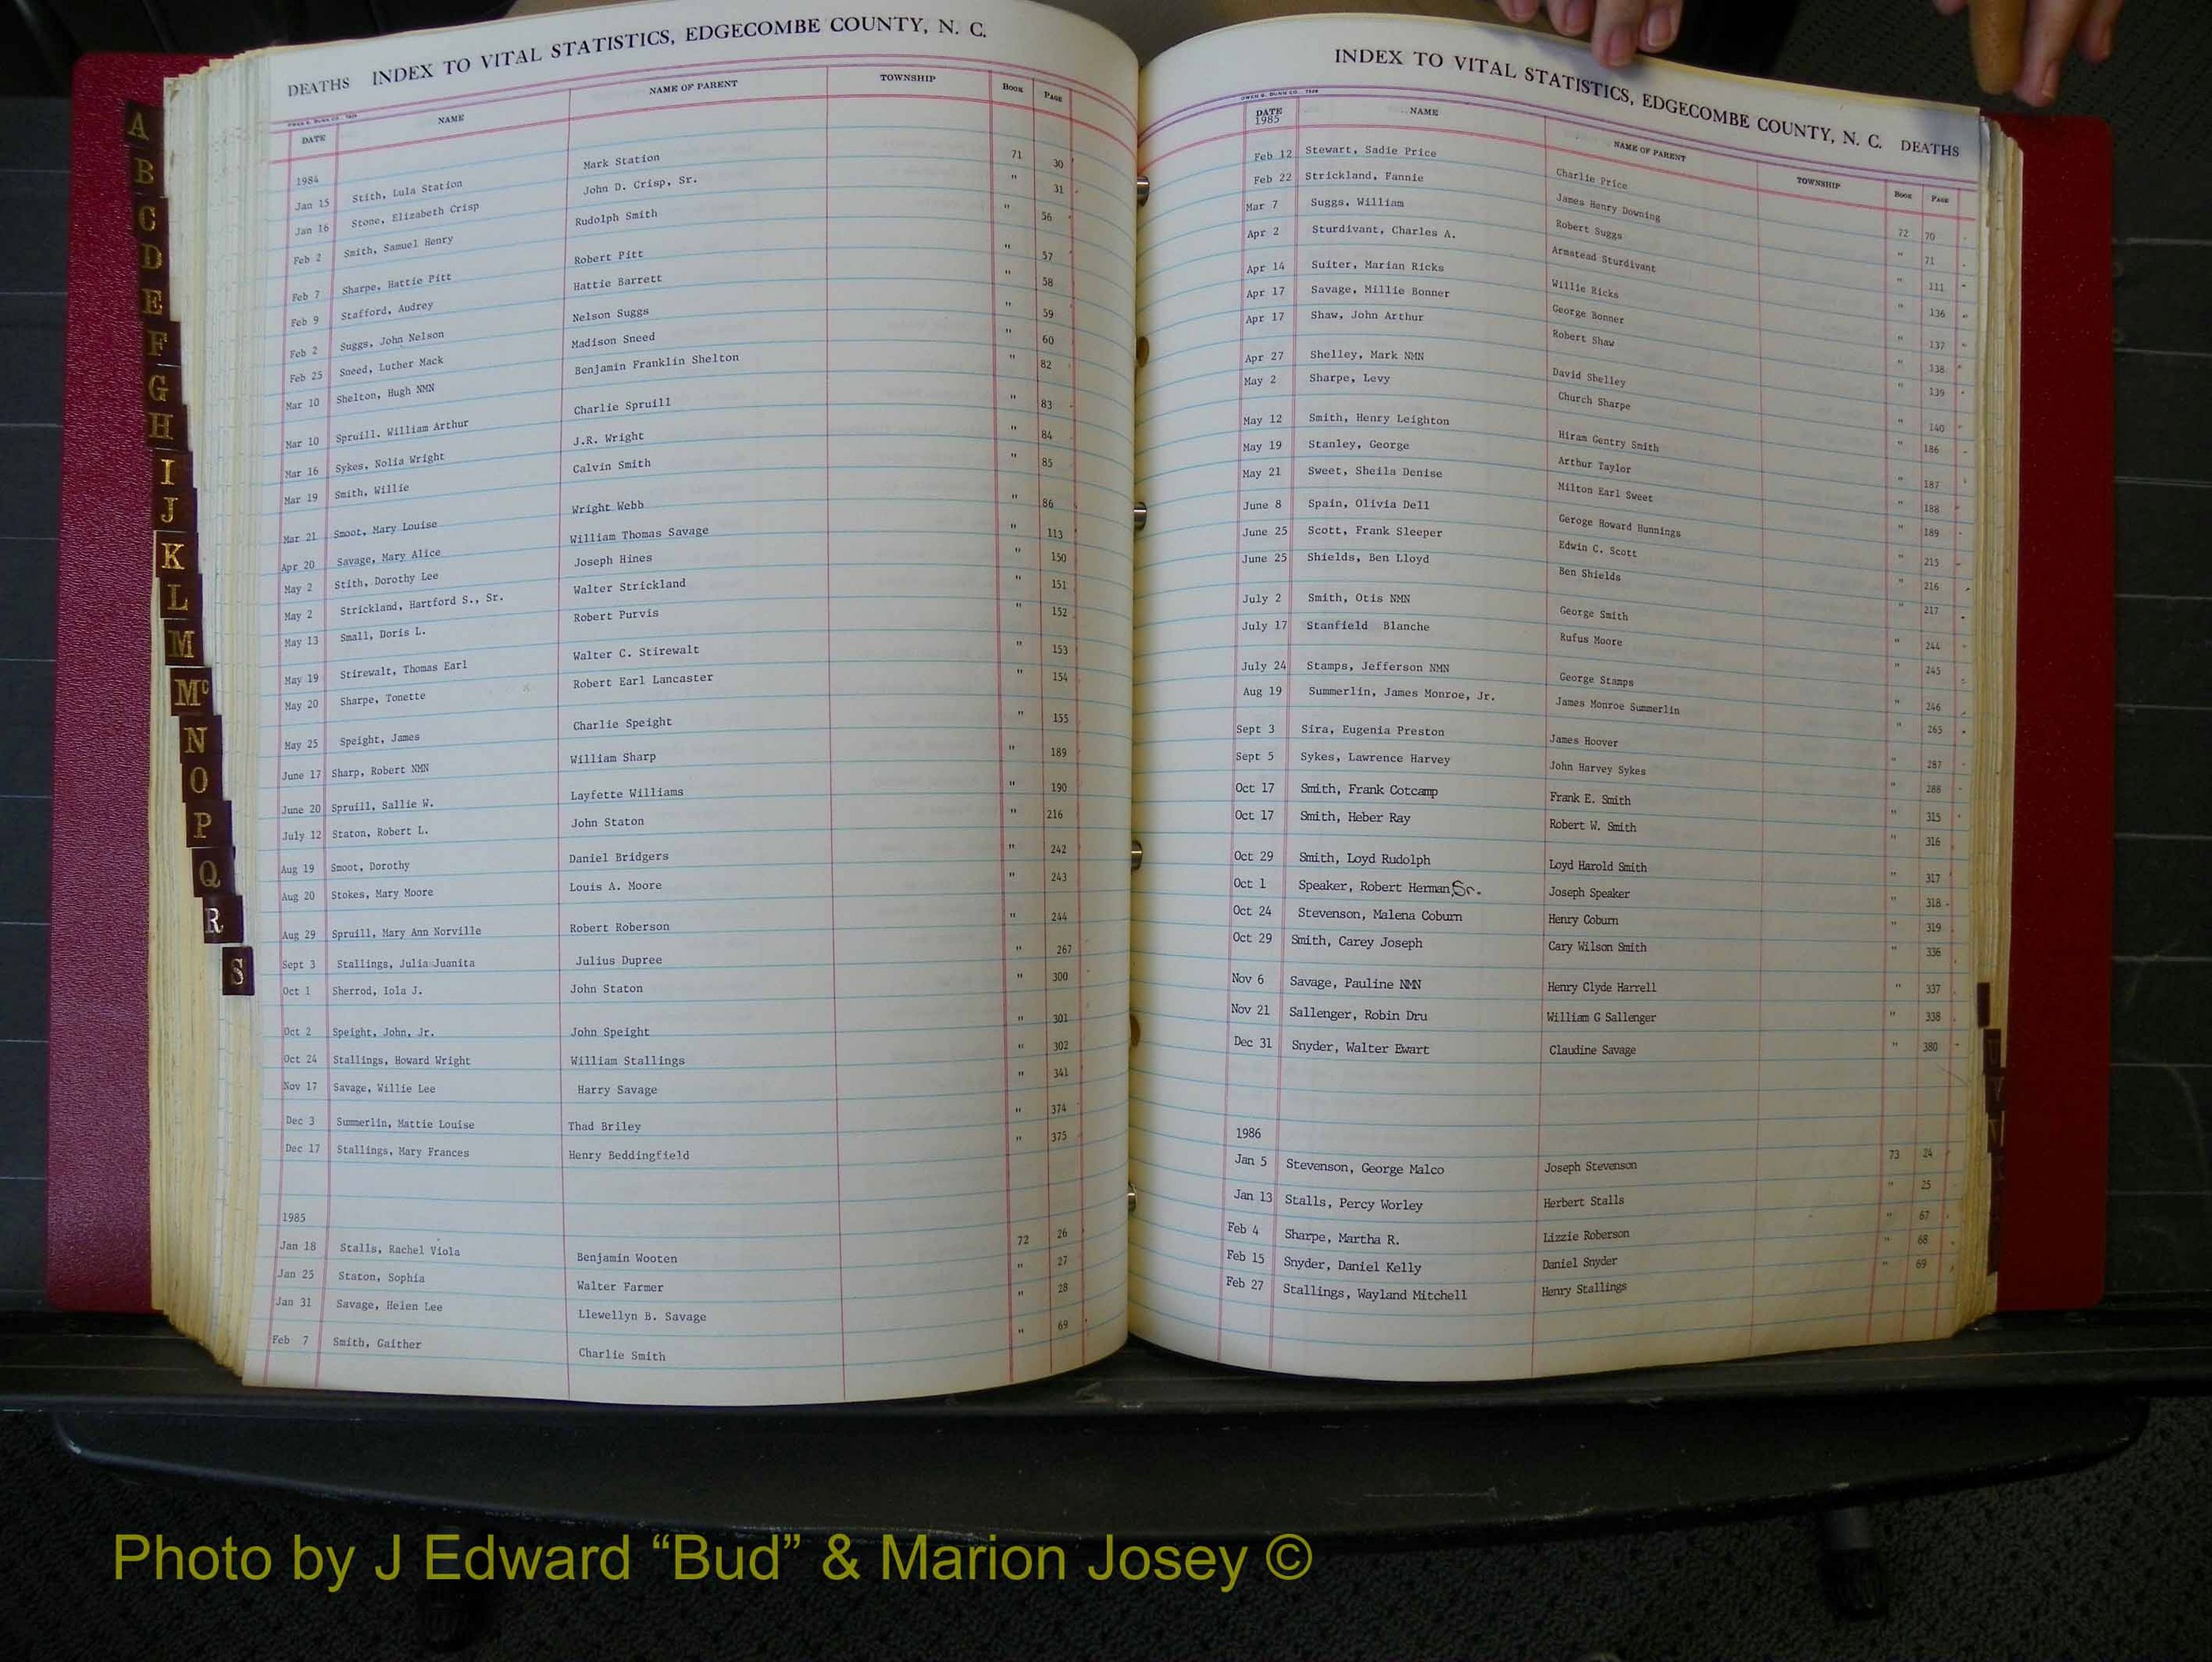 DEATHS INDEX TO VITAL STATISTICS, EDGECOMBE COUNTY, N. C.
OWEN G. DUNN CO.
DATE NAME NAME OF PARENT TOWNSHIP BOOK PAGE
1984
Jan 15 Stith, Lula Station Mark Station 71 30
Jan 16 Stone, Elizabeth Crisp John D. Crisp, Sr. " 31
Feb 2 Smith, Samuel Henry Rudolph Smith " 56
Feb 7 Sharpe, Hattie Pitt Robert Pitt " 57
Feb 9 Stafford, Audrey Hattie Barrett " 58
Feb 2 Suggs, John Nelson Nelson Suggs " 59
Feb 25 Sneed, Luther Mack Madison Sneed " 60
Mar 10 Shelton, Hugh NMN Benjamin Franklin Shelton " 82
Mar 10 Spruill. William Arthur Charlie Spruill " 83
Mar 16 Sykes, Nolia Wright J.R. Wright " 84
Mar 19 Smith, Willie Calvin Smith " 85
Mar 21 Smoot, Mary Louise Wright Webb " 86
Apr 20 Savage, Mary Alice William Thomas Savage " 113
May 2 Stith, Dorothy Lee Joseph Hines " 150
May 2 Strickland, Hartford S., Sr. Walter Strickland " 151
May 13 Small, Doris L. Robert Purvis " 152
May 19 Stirewalt, Thomas Earl Walter C. Stirewalt " 153
May 20 Sharpe, Tonette Robert Earl Lancaster " 154
May 25 Speight, James Charlie Speight " 155
June 17 Sharp, Robert NMN William Sharp " 189
June 20 Spruill, Sallie W. Layfette Williams " 190
July 12 Staton, Robert L. John Staton " 216
Aug 19 Smoot, Dorothy Daniel Bridgers " 242
Aug 20 Stokes, Mary Moore Louis A. Moore " 243
Aug 29 Spruill, Mary Ann Norville Robert Roberson " 244
Sept 3 Stallings, Julia Juanita Julius Dupree " 267
Oct 1 Sherrod, Iola J. John Staton " 300
Oct 2 Speight, John, Jr. John Speight " 301
Oct 24 Stallings, Howard Wright William Stallings " 302
Nov 17 Savage, Willie Lee Harry Savage " 341
Dec 3 Summerlin, Mattie Louise Thad Briley " 374
Dec 17 Stallings, Mary Frances Henry Beddingfield " 375
1985
Jan 18 Stalls, Rachel Viola Benjamin Wooten 72 26
Jan 25 Staton, Sophia Walter Farmer " 27
Jan 31 Savage, Helen Lee Llewellyn B. Savage " 28
Feb 7 Smith, Gaither Charlie Smith " 69
INDEX TO VITAL STATISTICS, EDGECOMBE COUNTY, N. C. DEATHS
OWEN G. DUNN CO.
DATE NAME NAME OF PARENT TOWNSHIP BOOK PAGE
1985
Feb 12 Stewart, Sadie Price Charlie Price 72 70
Feb 22 Strickland, Fannie James Henry Downing " 71
Mar 7 Suggs, William Robert Suggs " 111
Apr 2 Sturdivant, Charles A. Armstead Sturdivant " 136
Apr 14 Suiter, Marian Ricks Willie Ricks " 137
Apr 17 Savage, Millie Bonner George Bonner " 138
Apr 17 Shaw, John Arthur Robert Shaw " 139
Apr 27 Shelley, Mark NMN David Shelley " 140
May 2 Sharpe, Levy Church Sharpe " 186
May 12 Smith, Henry Leighton Hiram Gentry Smith " 187
May 19 Stanley, George Arthur Taylor " 188
May 21 Sweet, Sheila Denise Milton Earl Sweet " 189
June 8 Spain, Olivia Dell Geroge Howard Hunnings " 215
June 25 Scott, Frank Sleeper Edwin C. Scott " 216
June 25 Shields, Ben Lloyd Ben Shields " 217
July 2 Smith, Otis NMN George Smith " 244
July 17 Stanfield Blanche Rufus Moore " 245
July 24 Stamps, Jefferson NMN George Stamps " 246
Aug 19 Summerlin, James Monroe, Jr. James Monroe Summerlin " 265
Sept 3 Sira, Eugenia Preston James Hoover " 287
Sept 5 Sykes, Lawrence Harvey John Harvey Sykes " 288
Oct 17 Smith, Frank Cotcamp Frank E. Smith " 315
Oct 17 Smith, Heber Ray Robert W. Smith " 316
Oct 29 Smith, Loyd Rudolph Loyd Harold Smith " 317
Oct 1 Speaker, Robert Herman, Sr. Joseph Speaker " 318
Oct 24 Stevenson, Malena Coburn Henry Coburn " 319
Oct 29 Smith, Carey Joseph Cary Wilson Smith " 336
Nov 6 Savage, Pauline NMN Henry Clyde Harrell " 337
Nov 21 Sallenger, Robin Dru William G Sallenger " 338
Dec 31 Snyder, Walter Ewart Claudine Savage " 380
1986
Jan 5 Stevenson, George Malco Joseph Stevenson 73 24
Jan 13 Stalls, Percy Worley Herbert Stalls " 25
Feb 4 Sharpe, Martha R. Lizzie Roberson " 67
Feb 15 Snyder, Daniel Kelly Daniel Snyder " 68
Feb 27 Stallings, Wayland Mitchell Henry Stallings " 69
A
B
C
D
E
F
G
H
I
J
K
L
M
Mc
N
O
P
Q
R
S
Photo by J Edward “Bud” & Marion Josey ©